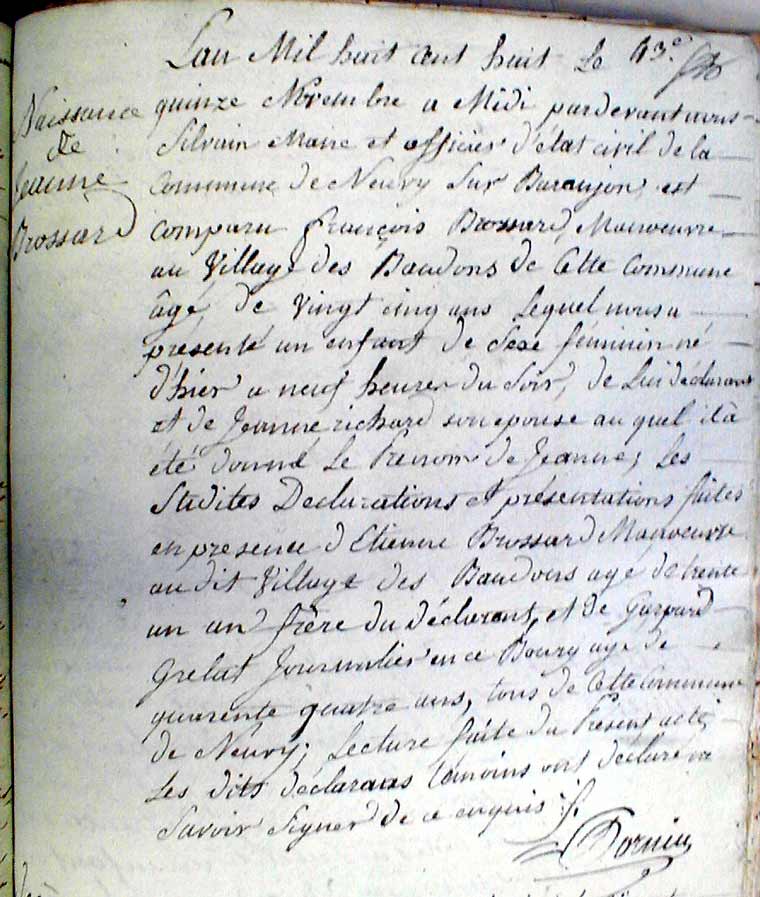 L'an Mil huit cent huit le 43e
Naissance
de
Jeanne
Brossard
quinze Novembre a Midi pardevant nous
Silvain Maire et officier d'état civil de la
Commune de Neuvy Sur Baranjon, est
comparu François Brossard, Manoeuvre
au Village des Baudons de Cette Commune
âgé de Vingt cinq ans lequel nous a
présenté un enfant de Sexe féminin né
d'hier a neuf heures du Soir, de Lui déclarant
et de Jeanne richard son epouse au quel il a
été donné Le Prenom de Jeanne; Les
Susdites Declarations et présentations faites
en presence d'Etienne Brossard Manoeuvre
audit Village des Baudons agé de trente
un an frère du Déclarant, et de Gaspard
Grelat Journalier en ce Bourg agé de
quarente quatre ans, tous de Cette Commune
de Neuvy; Lecture faite du Présent acte,
Les dits déclarans temoins ont déclaré ne
Savoir Signer de ce enquis ./.